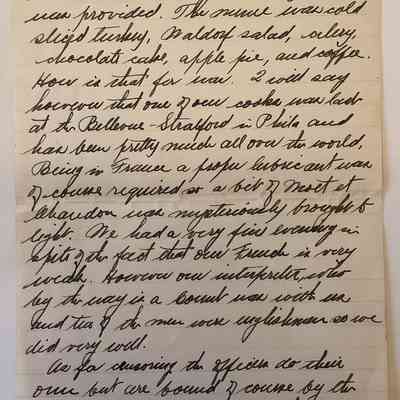 was provided. The menu was cold
sliced turkey, Waldorf salad, celery,
chocolate cake, apple pie, and coffee.
How is that for war. I will say
however that one of our cooks was last
at the Bellevue-Stratford in Phila and
has been pretty much all over the world.
Being in France a proper lubricant was
of course required so a bit of Moet et
Chandon was mysteriously brought to
light. We had a very fine evening in
spite of the fact that our French is very
weak. However our interpreter, who
by the way is a Count was with us
and two of the men were englishmen so we
did very well.
As for censoring the officers do their
own but are bound of course by the